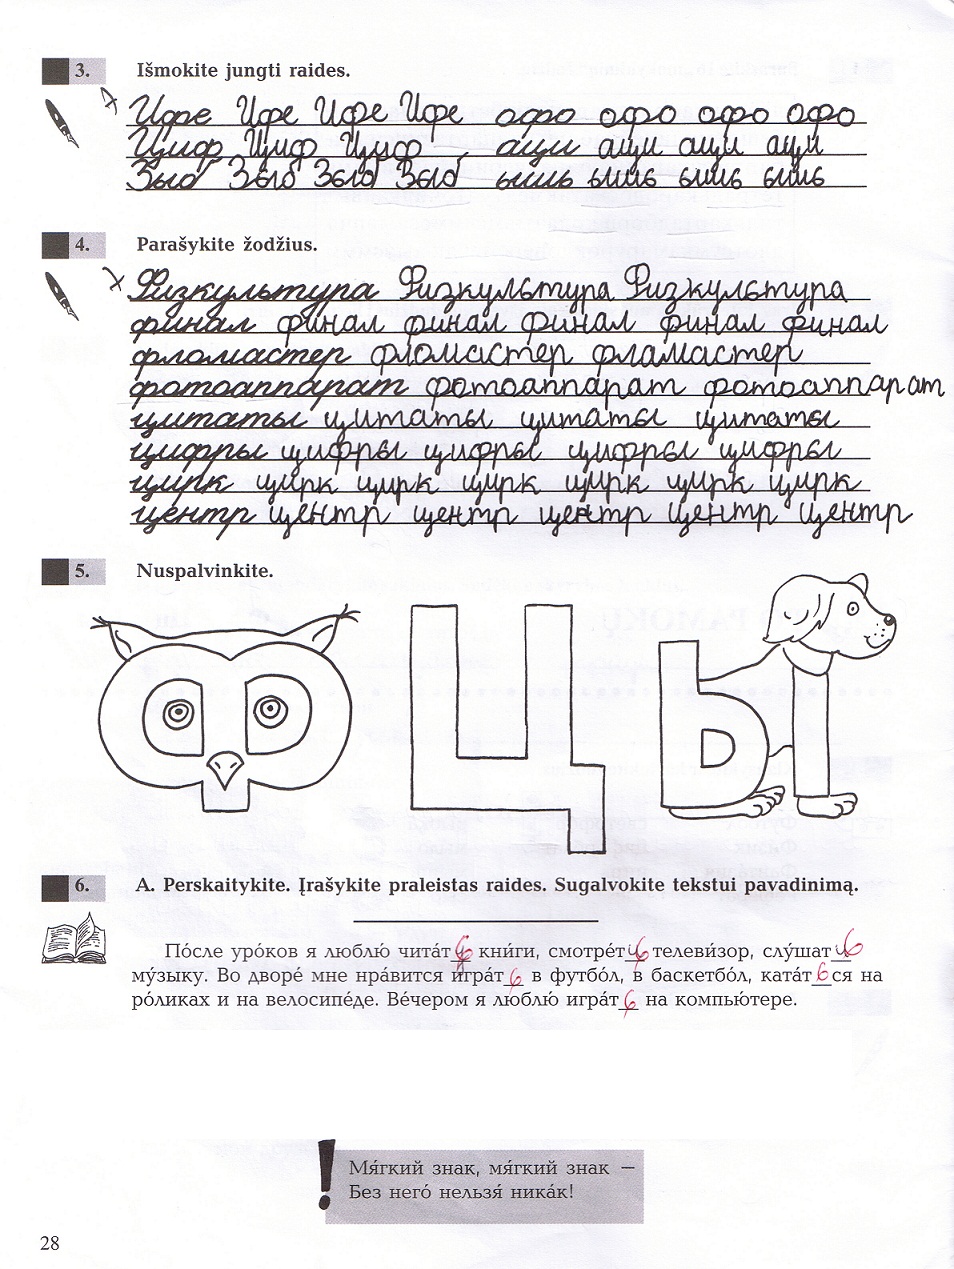 3. Išmokite jungti raides.
Ифе Ифе Ифе Ифе офо офо офо офо
Циф Циф Циф аци аци аци аци
Зыб Зыб Зыб Зыб ышь ышь ышь ышь
4. Parašykite žodžius.
Физкультура Физкультура Физкультура
финал финал финал финал финал финал
фломастер фломастер фламастер
фотоаппарат фотоаппарат фотоаппарат
цитаты цитаты цитаты цитаты
цифры цифры цифры цифры цифры
цирк цирк цирк цирк цирк цирк цирк
центр центр центр центр центр центр
5. Nuspalvinkite.
Ф Ц Ы
6. A. Perskaitykite. Įrašykite praleistas raides. Sugalvokite tekstui pavadinimą.
По́сле уро́ков я люблю́ чита́ть кни́ги, смотре́ть телеви́зор, слу́шать
му́зыку. Во дворе́ мне нра́вится игра́ть в футбо́л, в баскетбо́л, ката́ться на
ро́ликах и на велосипе́де. Ве́чером я люблю́ игра́ть на компью́тере.
! Мя́гкий знак, мя́гкий знак –
Без него́ нельзя́ ника́к!
28